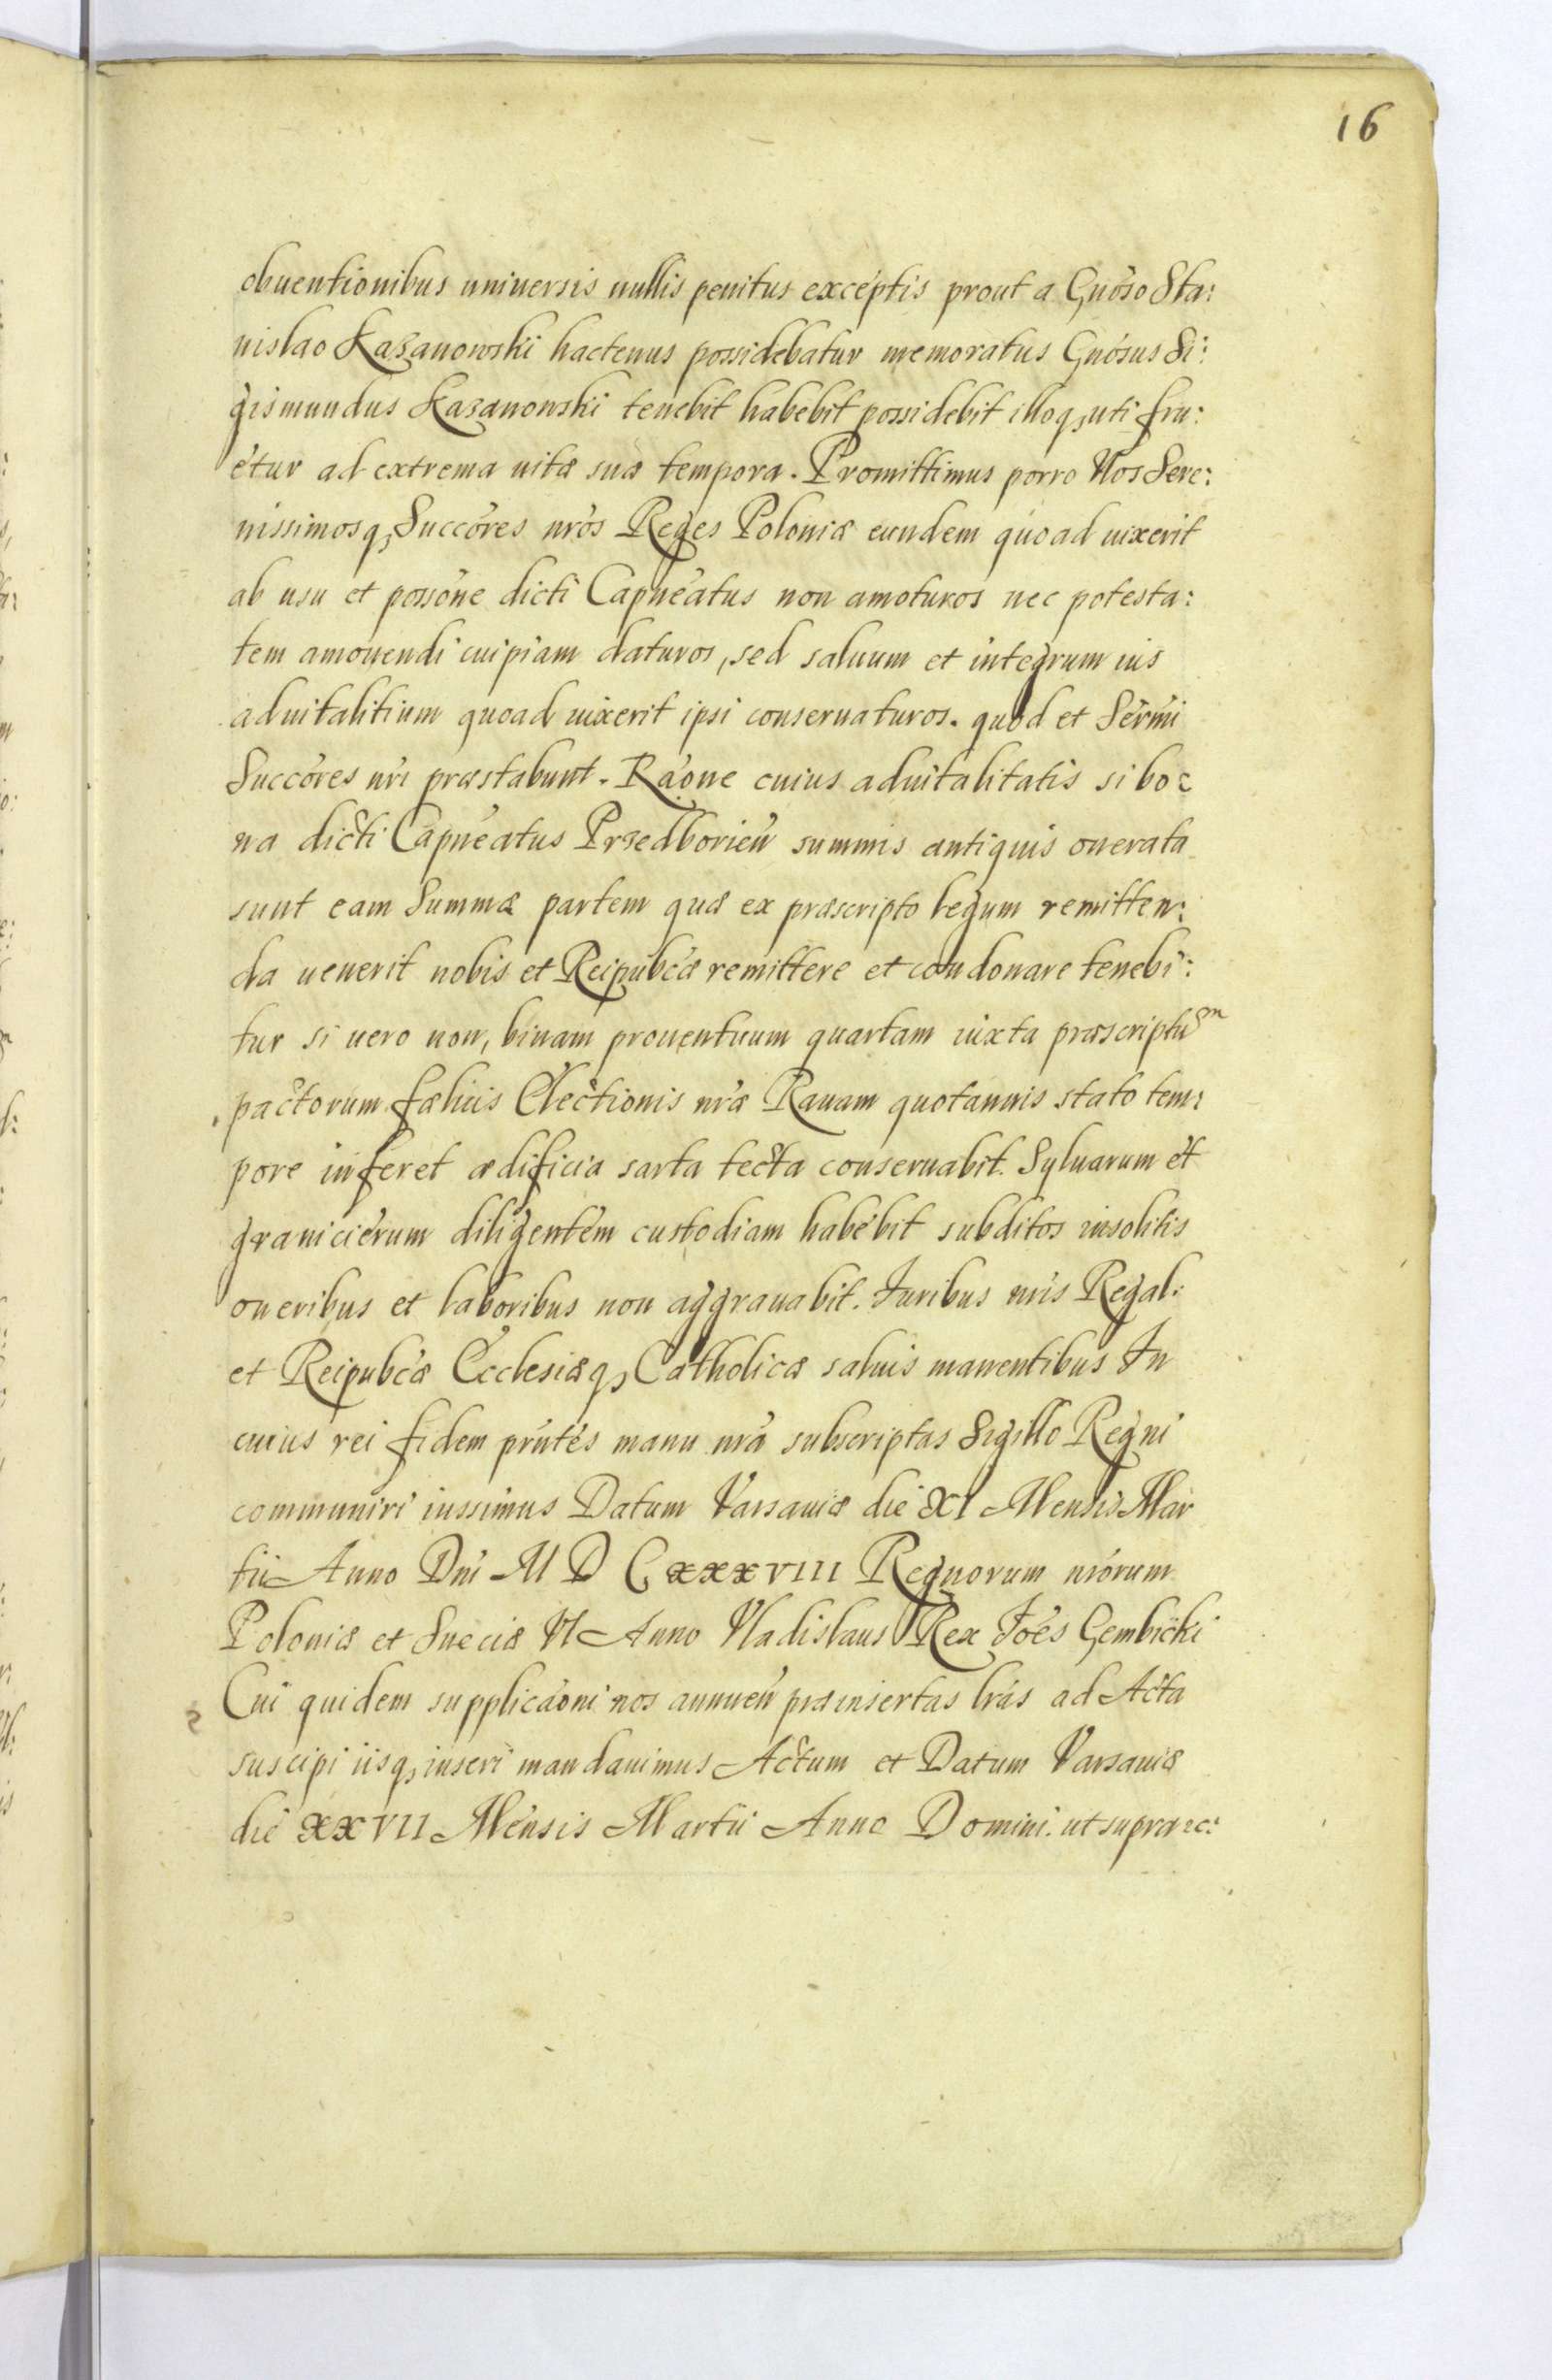 16
obuentionibus uniuersis nullis penitus exceptis prout a Gnoso Sta:
nislao Kazanowski hactenus possidebatur memoratus Gnosus Si:
gismundus Kazanowski tenebit habebit possidebit illoq, uti fru:
etur ad extrema uitæ suæ tempora. Promittimus porro Nos Sere:
nissimosq, Succóres nr̃os Reges Poloniæ eundem quoad uixerit
ab usu et possone dicti Capneatus non amoturos nec potesta:
tem amouendi cuipiam daturos, sed saluum et integrum ius
aduitalitium quoad uixerit ipsi conseruaturos. quod et Sermi
Succores nri præstabunt. Raone cuius aduitalitatis si bo:
na dicti Capneatus Przedborien summis antiquis onerata
sunt eam Summæ partem quæ ex præscripto legum remitten:
da uenerit nobis et Reipubcæ remittere et condonare tenebi:
tur si uero non, binam prouentuum quartam iuxta præscriptum
pactorum fælicis Electionis nræ Rauam quotannis stato tem:
pore inferet ædificia sarta tecta conseruabit. Syluarum et
granicierum diligentem custodiam habebit subditos insolitis
oneribus et laboribus non aggrauabit. Juribus nris Regal:
et Reipubcæ Ecclesiæq, Catholicæ saluis manentibus In
cuius rei fidem prntes manu nra subscriptas Sigillo Regni
communiri iussimus Datum Varsauiæ die XI Mensis Mar
tii Anno Dni M D C XXXVIII Regnorum nrorum
Poloniæ et Sueciæ VI Anno Vladislaus Rex Joes Gembicki
Cui quidem supplicaoni nos annuen præinsertas lras ad Acta
suscipi iisq, inseri mandauimus Actum et Datum Varsauiæ
die XXVII Mensis Martii Anno Domini. ut supra ec: